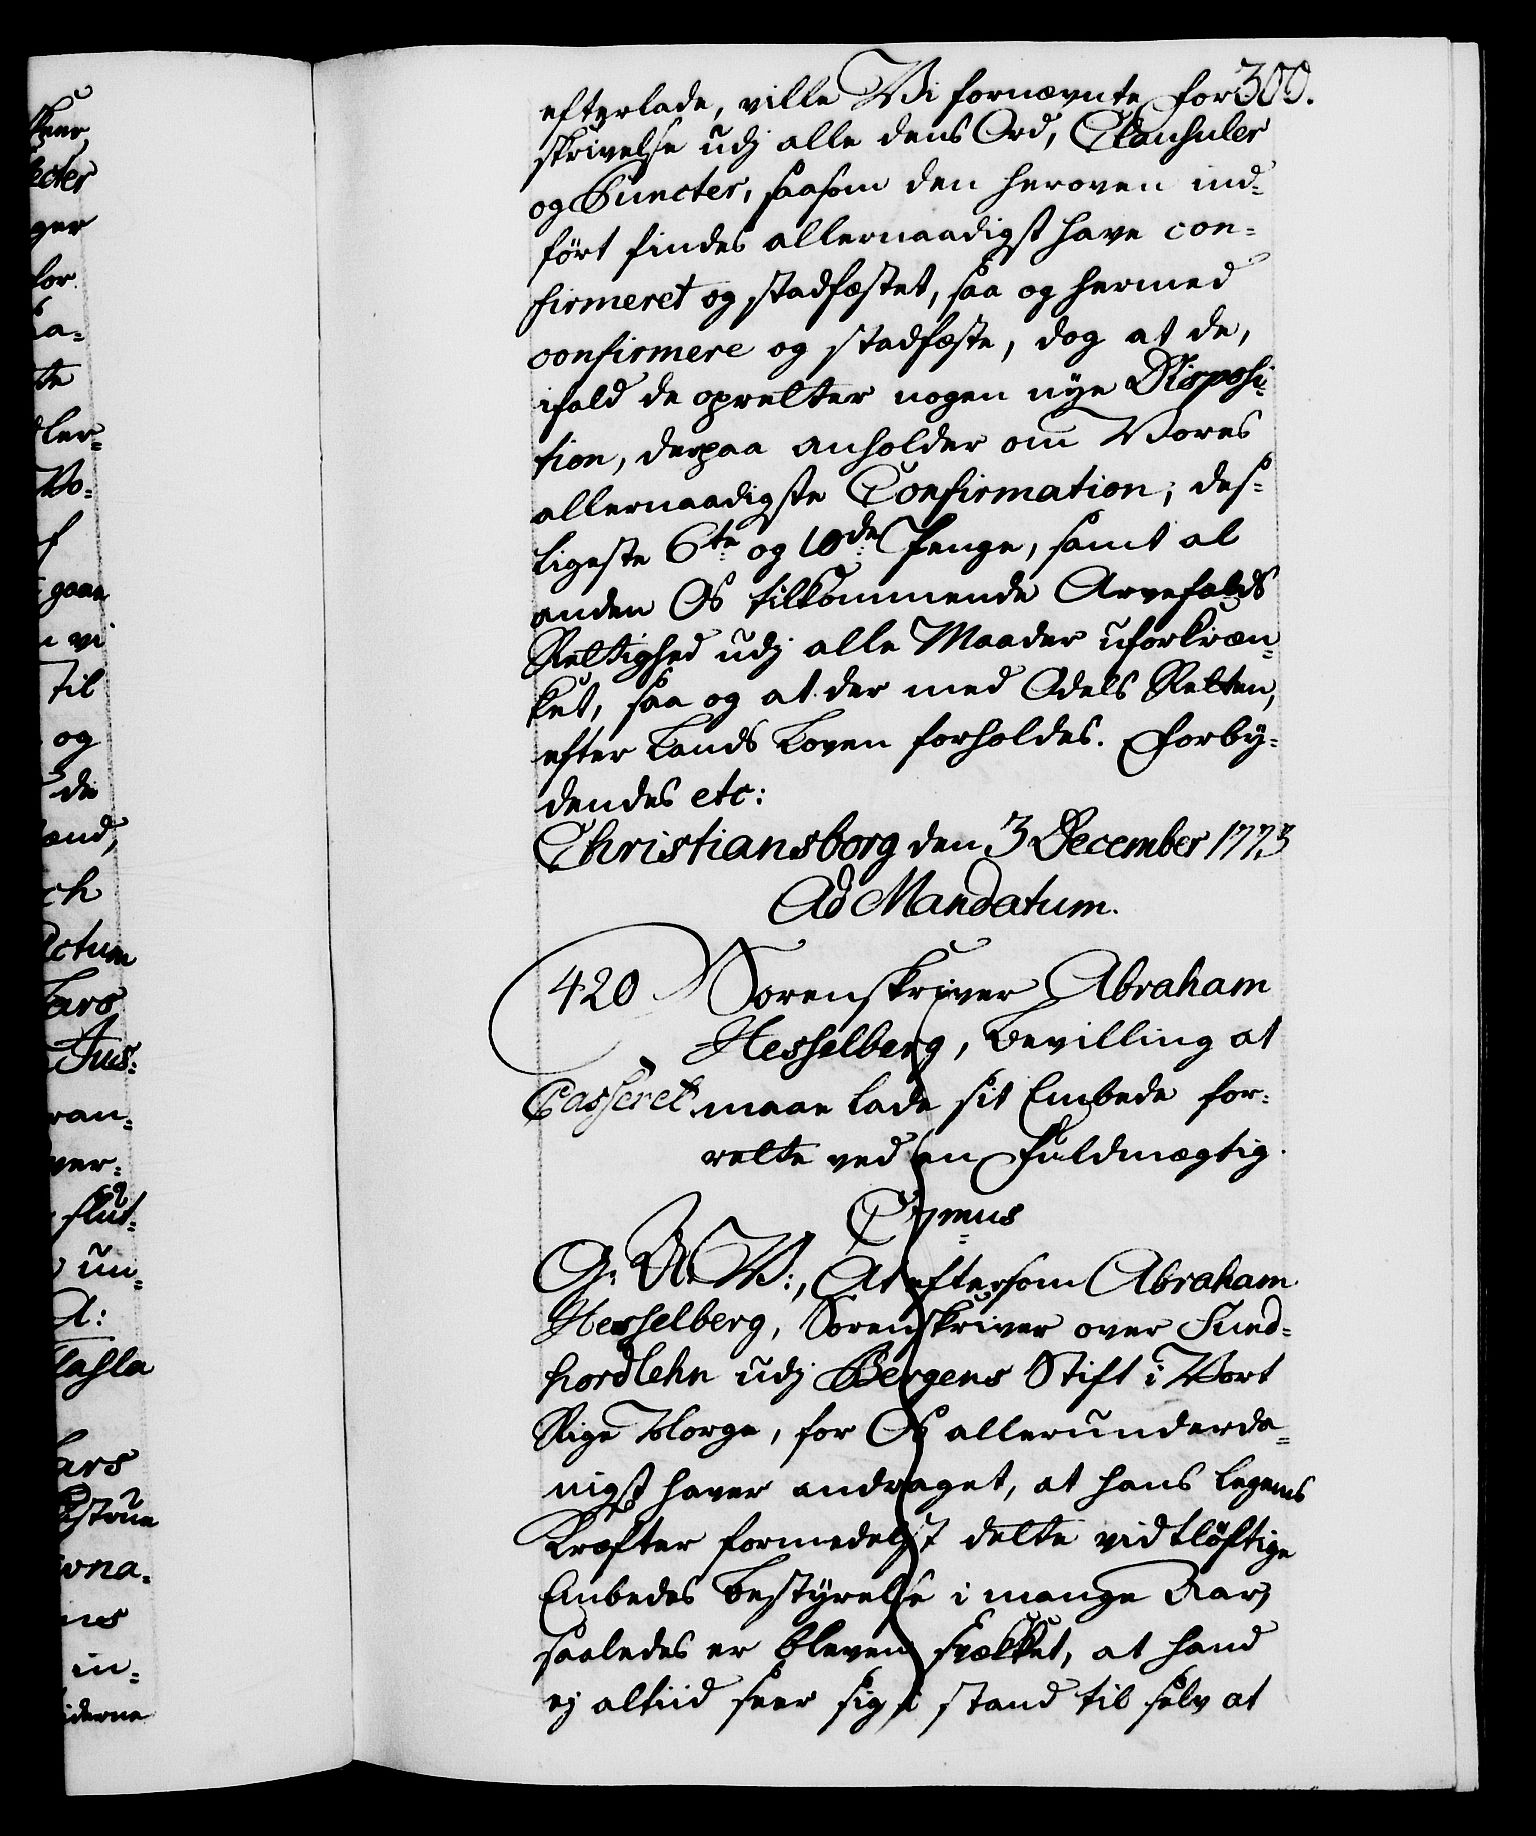 300.
efterlade, ville Vi fornævnte for
skrivelse udj alle dens Ord, Clausuler
og Puncter, saasom den heroven ind-
ført findes allernaadigst have con-
firmeret og stadfæstet, saa og hermed
confirmere og stadfæste, dog at de,
ifald de opretter nogen nye Disposi-
tion, derpaa anholder om Vores
allernaadigste Confirmation; des-
ligeste 6te og 10de Penge, samt al
anden Os tilkommende Arvefalds
Rettighed udj alle Maader uforkræn-
ket, saa og at der med Odels Retten,
efter Lands Loven forholdes. Forby-
dendes etc:
Christiansborg den 3 December 1773
Ad Mandatum.
420 Sorenskriver Abraham
Hesselberg, Bevilling at
Casseret. maae lade sit Embede for-
rette ved en Fuldmægtig.
C 7mus
G: A: V:, At eftersom Abraham
Hesselberg, Sorenskriver over Sund-
hordlehn udj Bergens Stift i Vort
Rige Norge, for Os allerunderda-
nigst haver andraget, at hans Legems
Kræfter formedelst dette vidtløftige
Embedes Bestyrelse i mange Aar,
saaledes er bleven svækket, at hand
ej altiid seer sig i stand til selv at